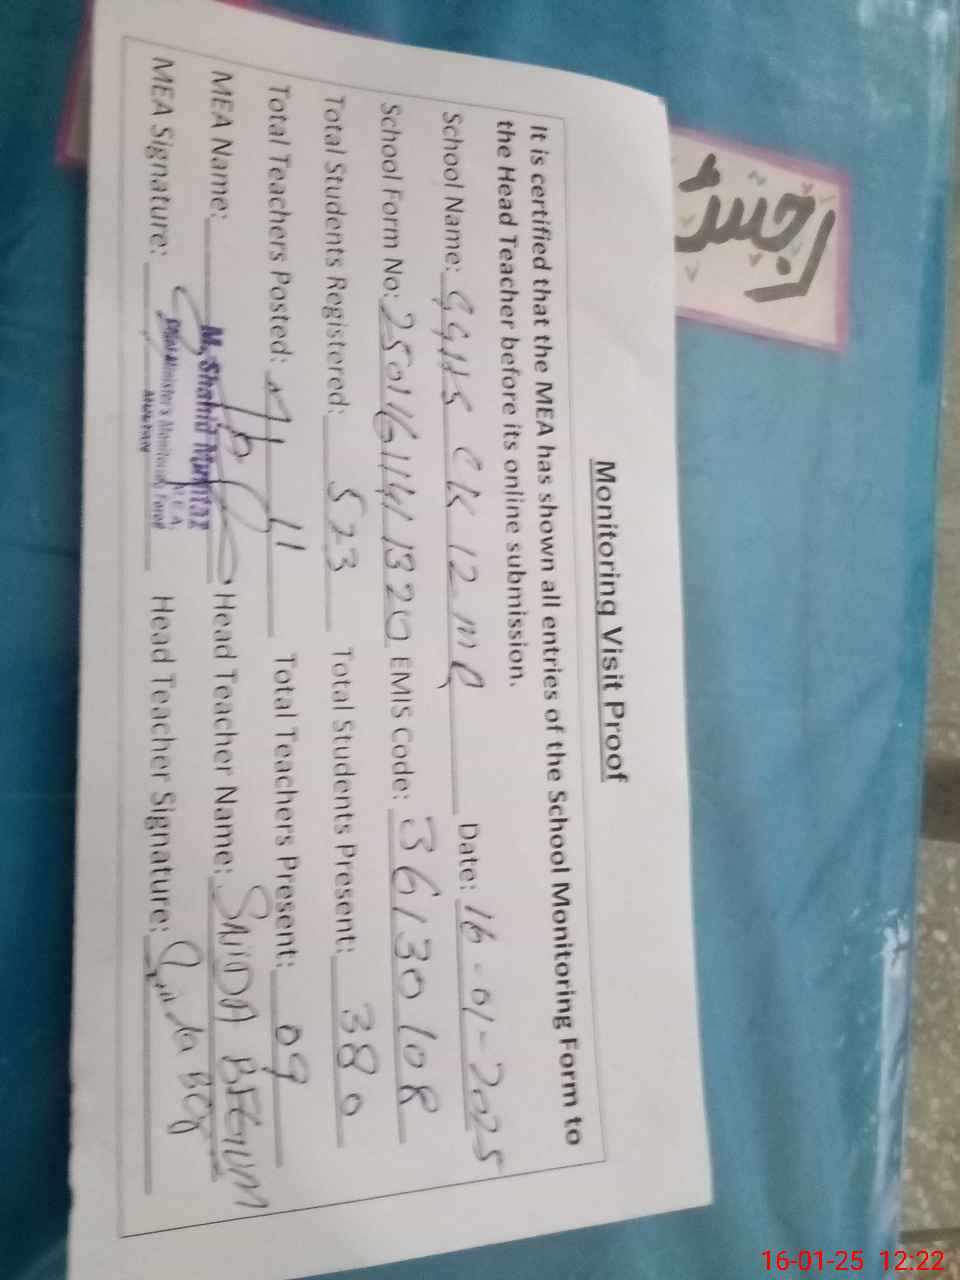 Monitoring Visit Proof
It is certified that the MEA has shown all entries of the School Monitoring Form to
the Head Teacher before its online submission.
School Name: GGHS CK 12 MR Date: 16-01-2025
School Form No: EMIS Code: 36130108
Total Students Registered: 523 Total Students Present: 380
Total Teachers Posted: 11 Total Teachers Present: 09
MEA Name: M. Shahid Mumtaz Head Teacher Name: BEGUM
MEA Signature: Head Teacher Signature:
M.E.A.
Chief Minister's Monitoring Force
MULTAN
16-01-25 12:22